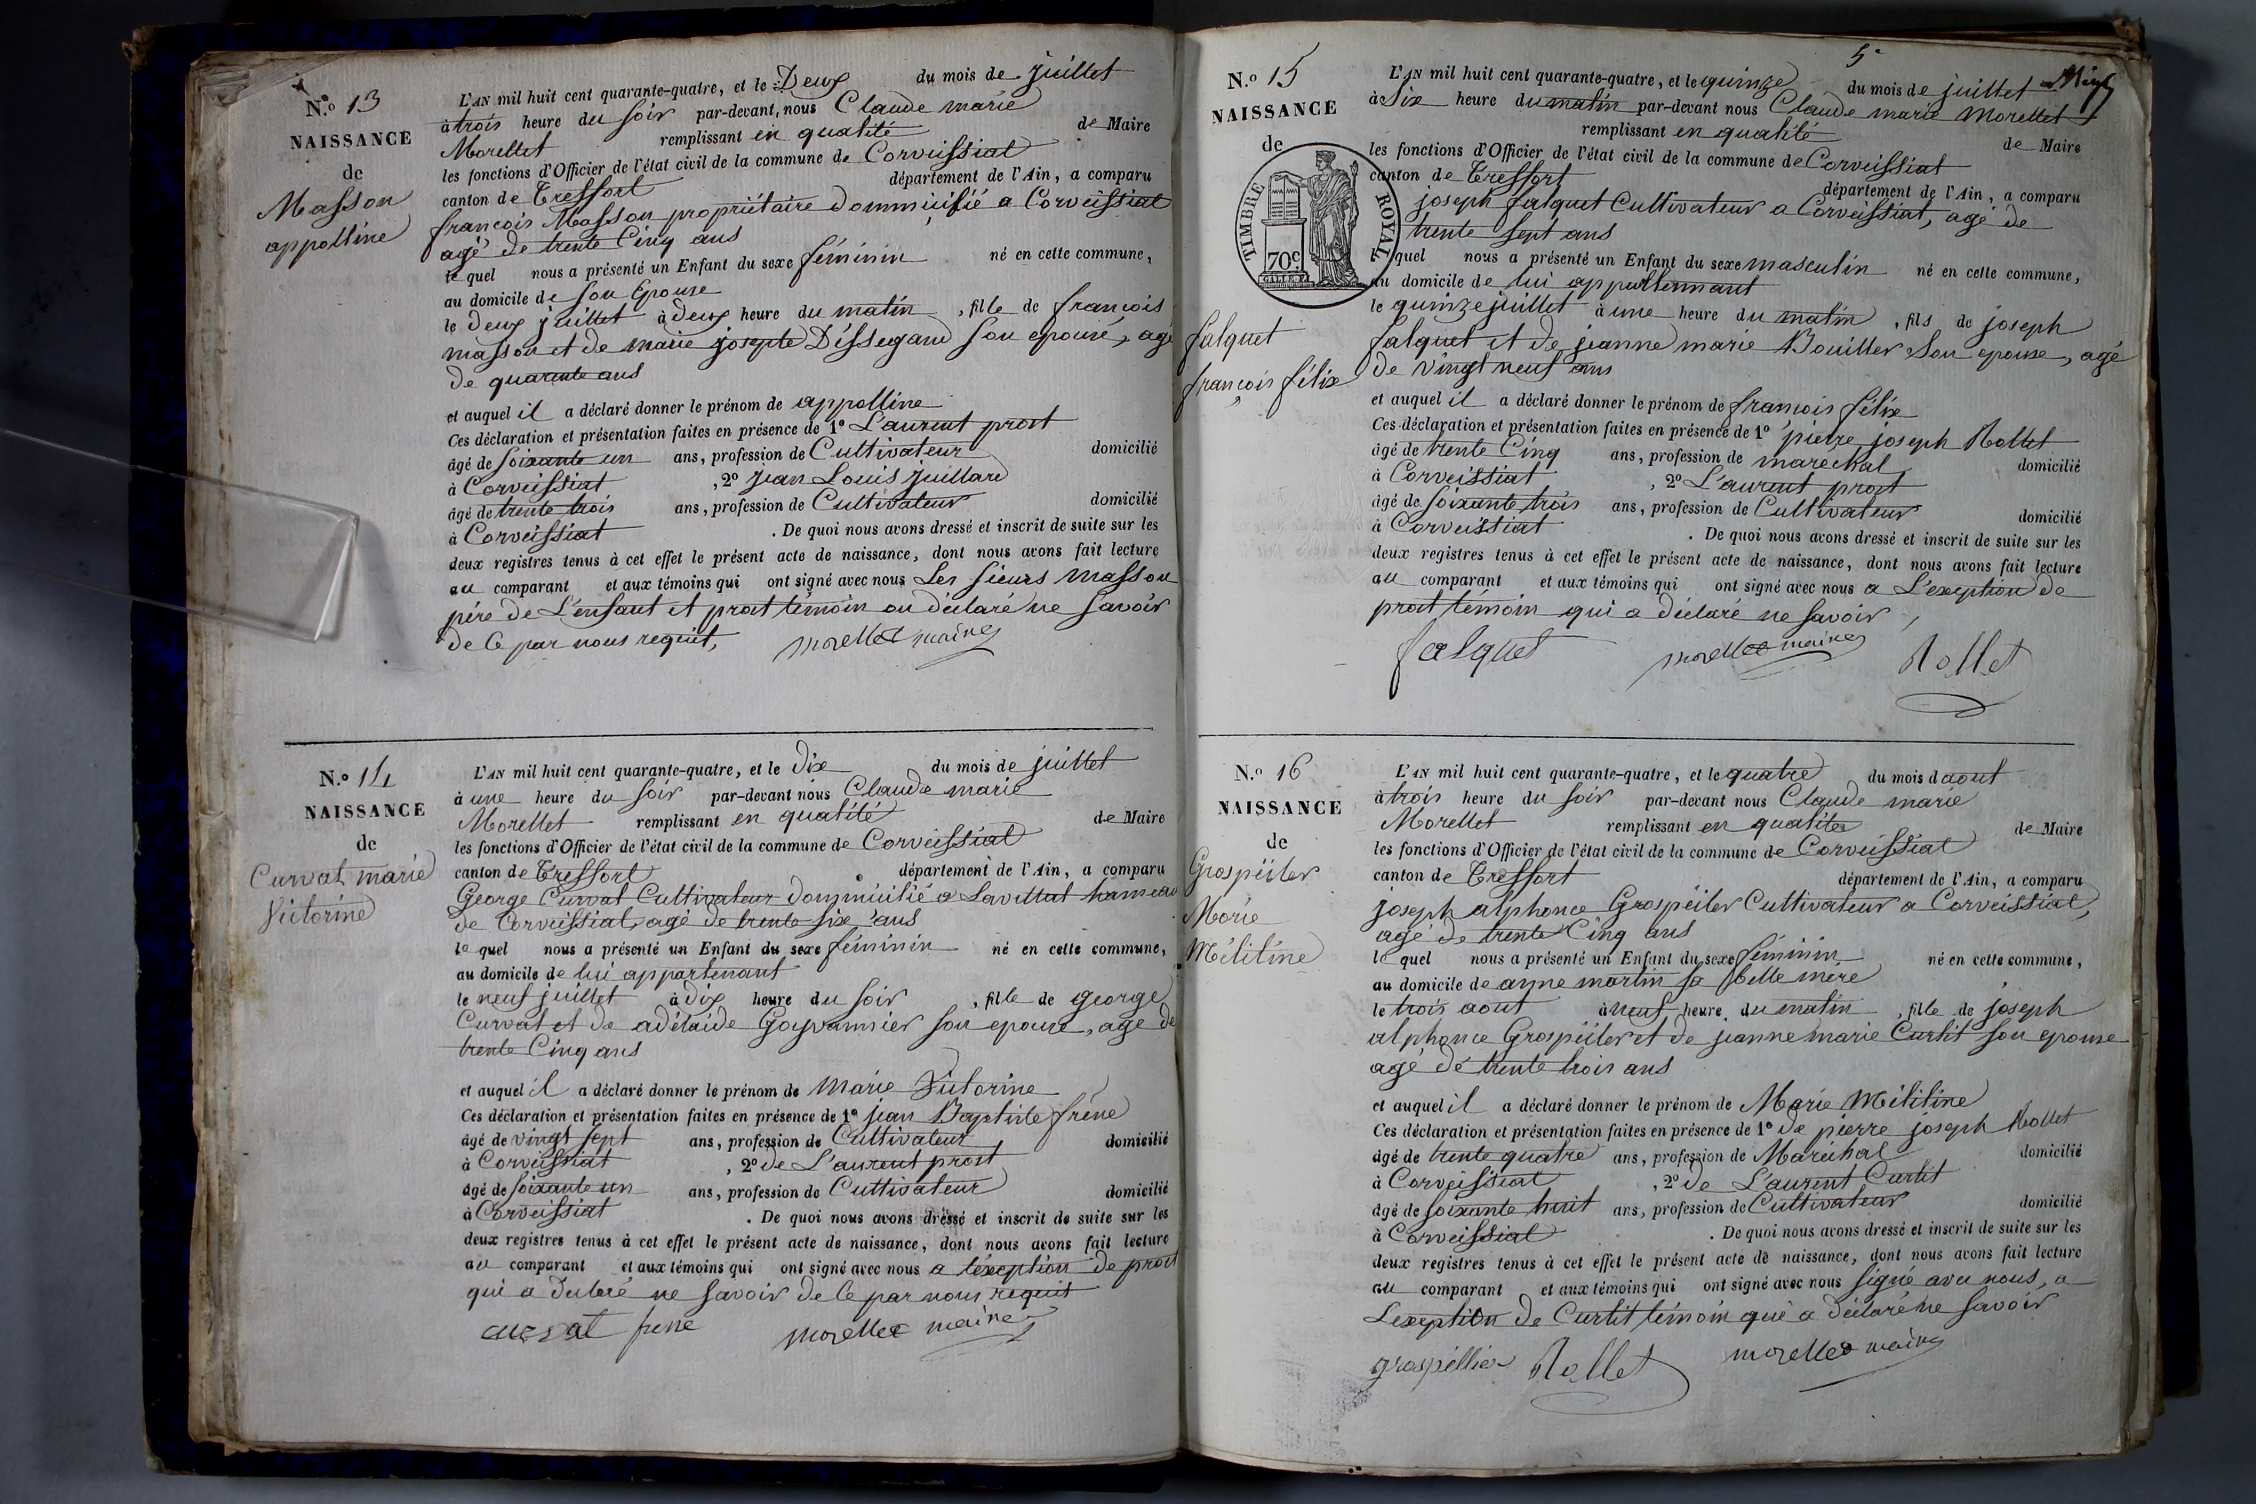 N.o 13
NAISSANCE
de
Masson
appolline
L'AN mil huit cent quarante-quatre, et le Deux du mois de juillet
à trois heure du soir par-devant, nous Claude marie
Morellet remplissant en qualité de Maire
les fonctions d'Officier de l'état civil de la commune de Corveissiat
canton de Treffort département de l'Ain, a comparu
francois Masson propriétaire domminilié a Corveissiat
agé de trente Cinq ans
le quel nous a présenté un Enfant du sexe féminin né en cette commune,
au domicile de son Epouse
le deux juillet à deux heure du matin, fille de francois
masson et de marie josepte Dissegard son epouse, agé
de quarente ans
et auquel il a déclaré donner le prénom de appolline
Ces déclaration et présentation faites en présence de 1o L'aurent prost
âgé de soixante un ans, profession de Cultivateur domicilié
à Corveissiat, 2o jean Louis juillard
âgé de trente trois ans, profession de Cultivateur domicilié
à Corveissiat. De quoi nous avons dressé et inscrit de suite sur les
deux registres tenus à cet effet le présent acte de naissance, dont nous avons fait lecture
au comparant et aux témoins qui ont signé avec nous Les sieurs masson
père de L'enfant et prost témoin on déclaré ne savoir
de Ce par nous requit,
morellet maire
N.o 14
NAISSANCE
de
Curvat marie
Victorine
L'AN mil huit cent quarante-quatre, et le dix du mois de juillet
à une heure du soir par-devant nous Claude marie
Morellet remplissant en qualité de Maire
les fonctions d'Officier de l'état civil de la commune de Corveissiat
canton de Treffort département de l'Ain, a comparu
George Curvat Cultivateur domminilié a Lavillat hameau
de Corveissiat, agé de trente six ans
le quel nous a présenté un Enfant du sexe féminin né en cette commune,
au domicile de lui appartenant
le neuf juillet à dix heure du soir, fille de george
Curvat et de adélaide son epouse, agé de
trente Cinq ans
et auquel il a déclaré donner le prénom de marie Victorine
Ces déclaration et présentation faites en présence de 1o jean Baptiste frène
âgé de vingt sept ans, profession de Cultivateur domicilié
à Corveissiat, 2o de L'aurent prost
âgé de soixante un ans, profession de Cultivateur domicilié
à Corveissiat. De quoi nous avons dressé et inscrit de suite sur les
deux registres tenus à cet effet le présent acte de naissance, dont nous avons fait lecture
au comparant et aux témoins qui ont signé avec nous a l'éxception de prost
qui a declaré ne savoir de Ce par nous requit
curvat frene morellet maire
5e
N.o 15
NAISSANCE
de
TIMBRE ROYAL
70c
falquet
françois félix
L'AN mil huit cent quarante-quatre, et le quinze du mois de juillet
à Six heure du matin par-devant nous Claude marie Morellet
remplissant en qualité de Maire
les fonctions d'Officier de l'état civil de la commune de Corveissiat
canton de Treffort département de l'Ain, a comparu
joseph falquet Cultivateur a Corveissiat, agé de
trente sept ans
le quel nous a présenté un Enfant du sexe masculin né en cette commune,
au domicile de lui appartennant
le quinze juillet à une heure du matin, fils de joseph
falquet et de jeanne marie Bouiller Son epouse, agé
de vingt neuf ans
et auquel il a déclaré donner le prénom de francois félix
Ces déclaration et présentation faites en présence de 1o pierre joseph Rollet
âgé de trente Cinq ans, profession de marechal domicilié
à Corveissiat, 2o L'aurent prost
âgé de soixante trois ans, profession de Cultivateur domicilié
à Corveissiat. De quoi nous avons dressé et inscrit de suite sur les
deux registres tenus à cet effet le présent acte de naissance, dont nous avons fait lecture
au comparant et aux témoins qui ont signé avec nous a L'exception de
prost témoin qui a déclaré ne savoir,
falquet morellet maire Rollet
N.o 16
NAISSANCE
de
Grospéiler
Marie
Mélitine
L'AN mil huit cent quarante-quatre, et le quatre du mois d aout
à trois heure du soir par-devant nous Claude marie
Morellet remplissant en qualité de Maire
les fonctions d'Officier de l'état civil de la commune de Corveissiat
canton de Treffort département de l'Ain, a comparu
joseph alphonce Grospéiler Cultivateur a Corveissiat,
agé de trente Cinq ans
le quel nous a présenté un Enfant du sexe féminin né en cette commune,
au domicile de anne martin sa belle mère
le trois aout à neuf heure du matin, fille de joseph
alphonce Grospéiler et de jeanne marie Curtit son epouse
agé de trente trois ans
et auquel il a déclaré donner le prénom de Marie Mélitine
Ces déclaration et présentation faites en présence de 1o de pierre joseph Rollet
âgé de trente quatre ans, profession de Maréchal domicilié
à Corveissiat, 2o de L'aurent Curtit
âgé de soixante huit ans, profession de Cultivateur domicilié
à Corveissiat. De quoi nous avons dressé et inscrit de suite sur les
deux registres tenus à cet effet le présent acte de naissance, dont nous avons fait lecture
au comparant et aux témoins qui ont signé avec nous signé avec nous, a
L'exeption de Curtit témoin qui a déclaré ne savoir
grospéllier Rollet morellet maire